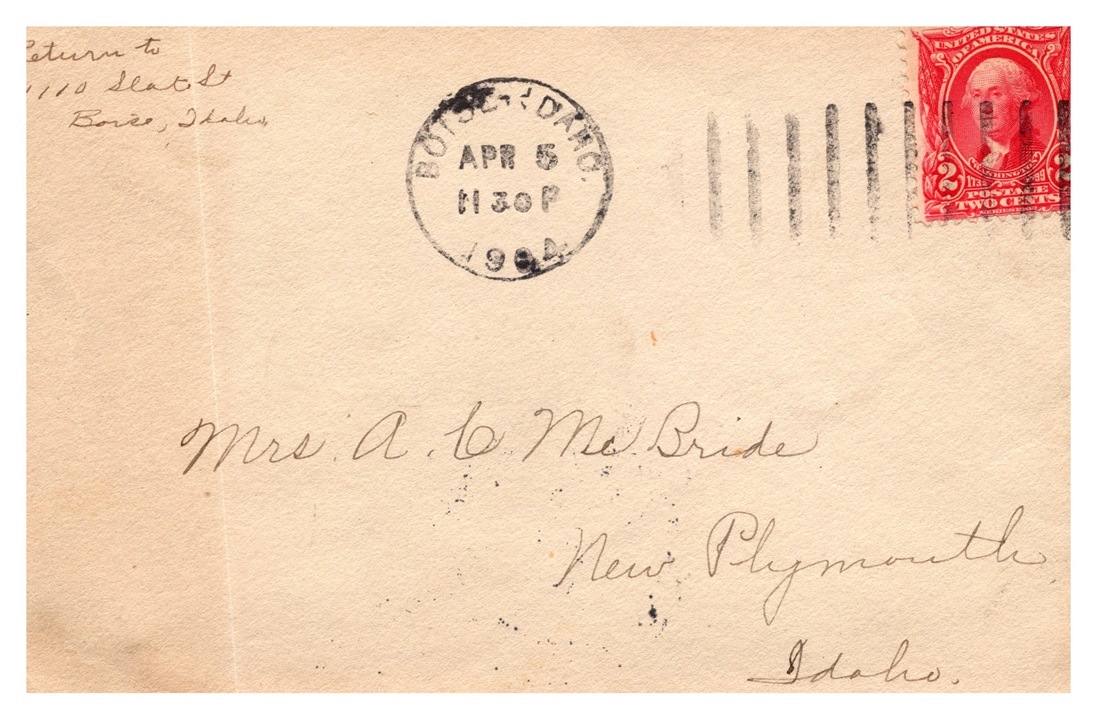 Return to
1110 Slat St
Boise, Idaho,
BOISE, IDAHO.
APR 5
11 30 P
1904
UNITED STATES
OF AMERICA
WASHINGTON
1732 1799
2 2
POSTAGE
TWO CENTS
Mrs A. C. McBride
New Plymouth
Idaho.